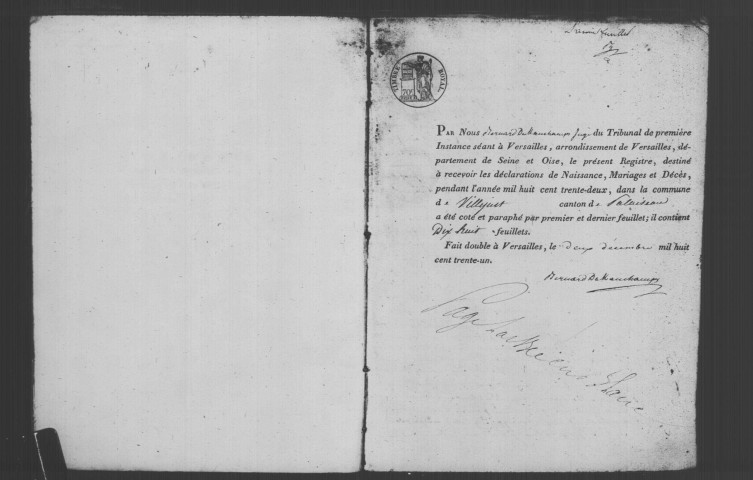 TIMBRE ROYAL
PAR NOUS Bernard Demanchamps Juge du Tribunal de première
Instance séant à Versailles, arrondissement de Versailles, dé-
partement de Seine et Oise, le présent Registre, destiné
à recevoir les déclarations de Naissance, Mariages et Décès,
pendant l'année mil huit cent trente-deux, dans la commune
de Villejust canton de Palaiseau
a été coté et paraphé par premier et dernier feuillet; il contient
Dix huit feuillets.
Fait double à Versailles, le deux décembre mil huit
cent trente-un.
Page